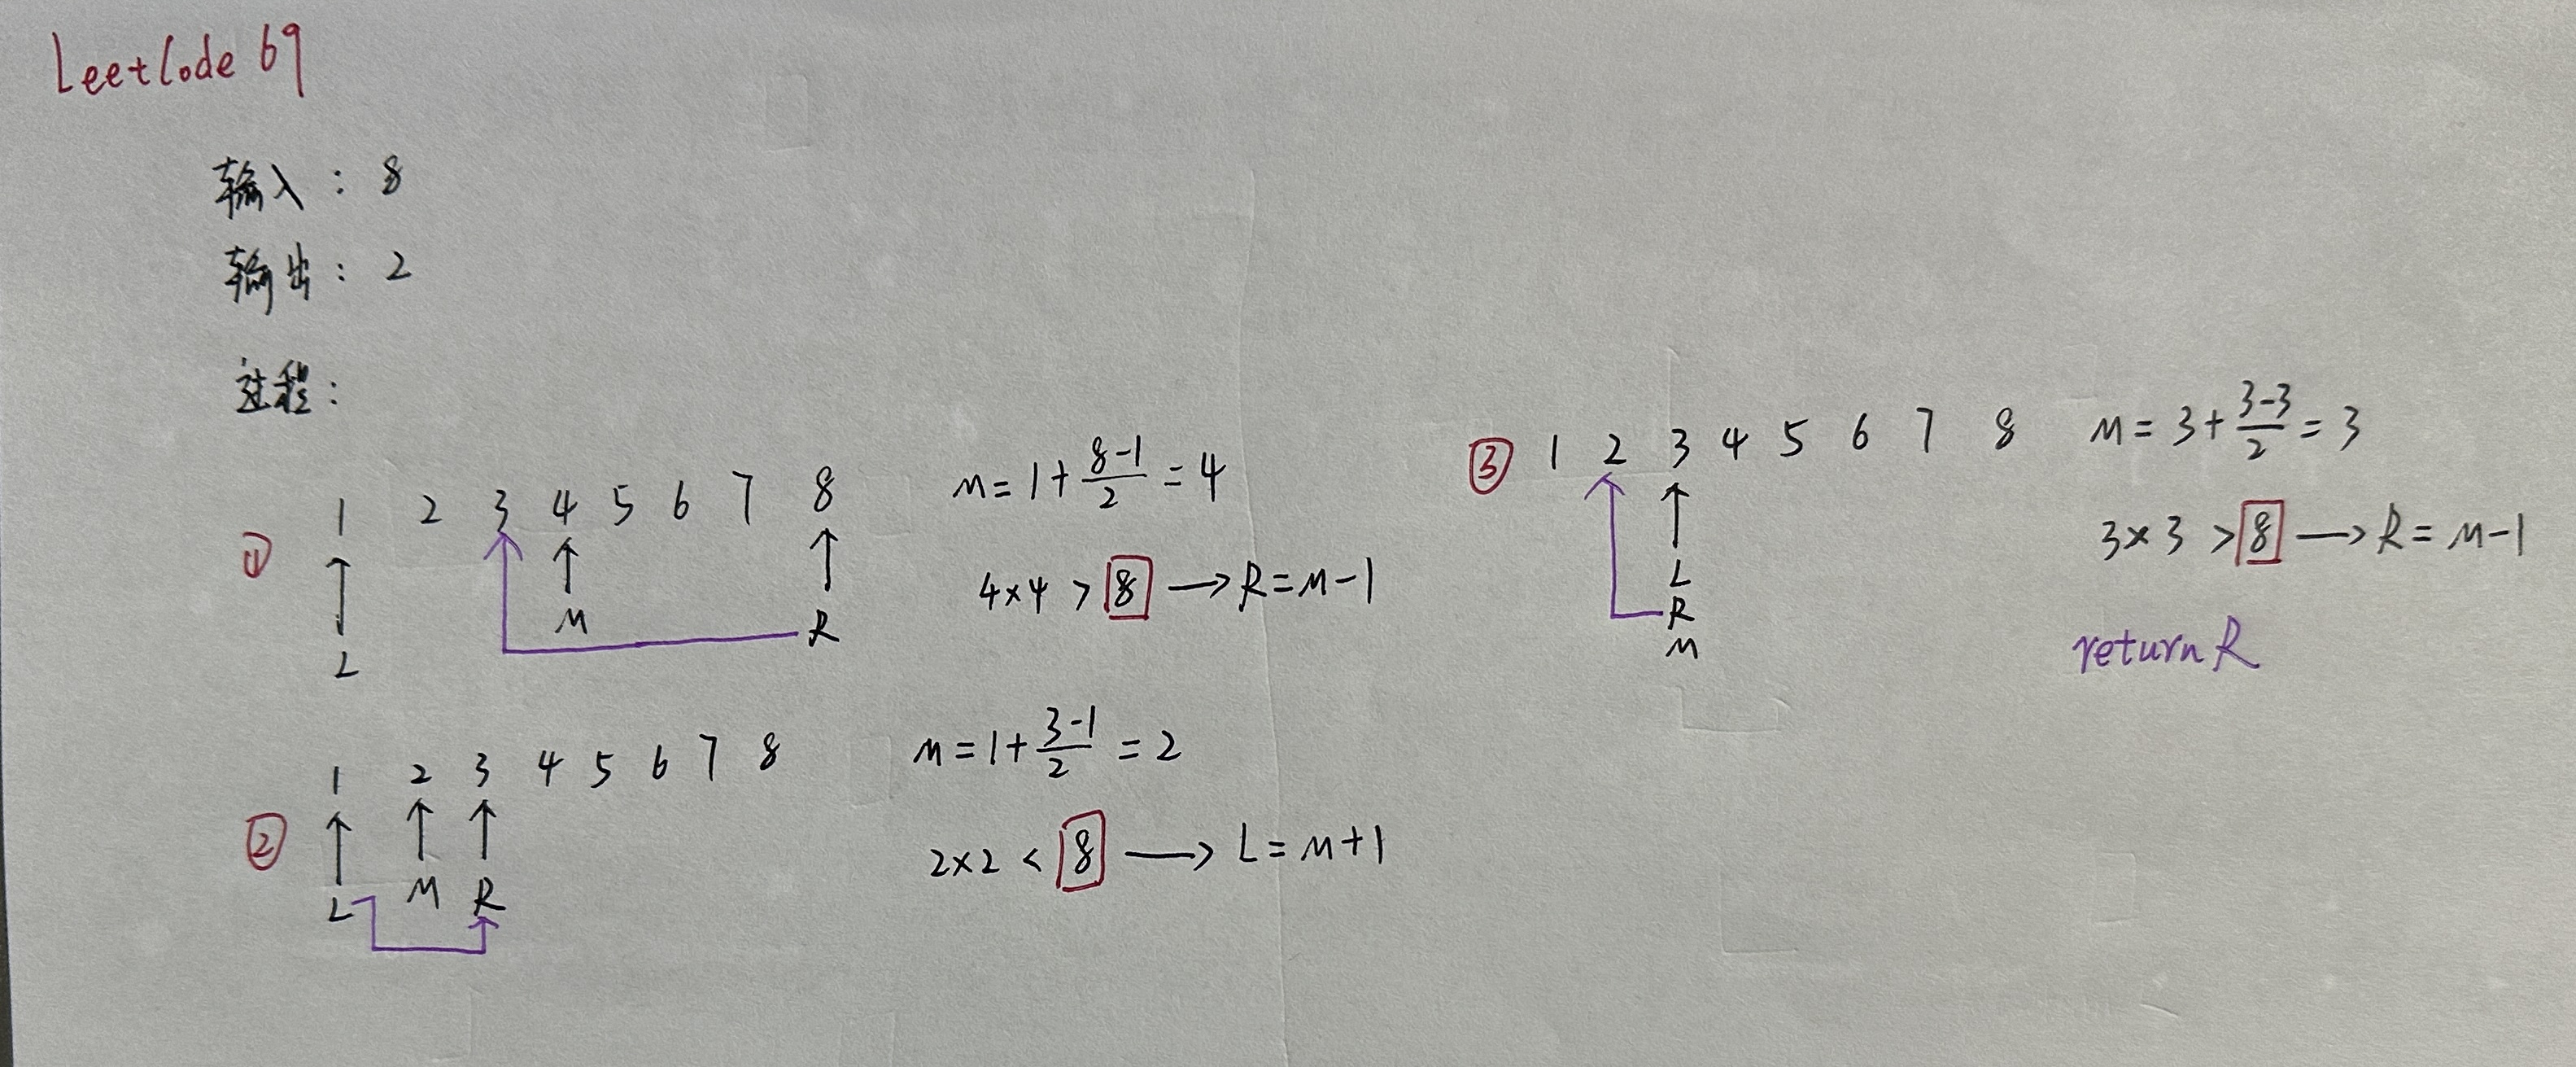 Leetcode 69
输入：8
输出：2
过程：
① 1 2 3 4 5 6 7 8
L M R
M = 1 + (8-1)/2 = 4
4×4 > 8 → R = M-1
② 1 2 3 4 5 6 7 8
L M R
M = 1 + (3-1)/2 = 2
2×2 < 8 → L = M+1
③ 1 2 3 4 5 6 7 8
L
R
M
M = 3 + (3-3)/2 = 3
3×3 > 8 → R = M-1
return R